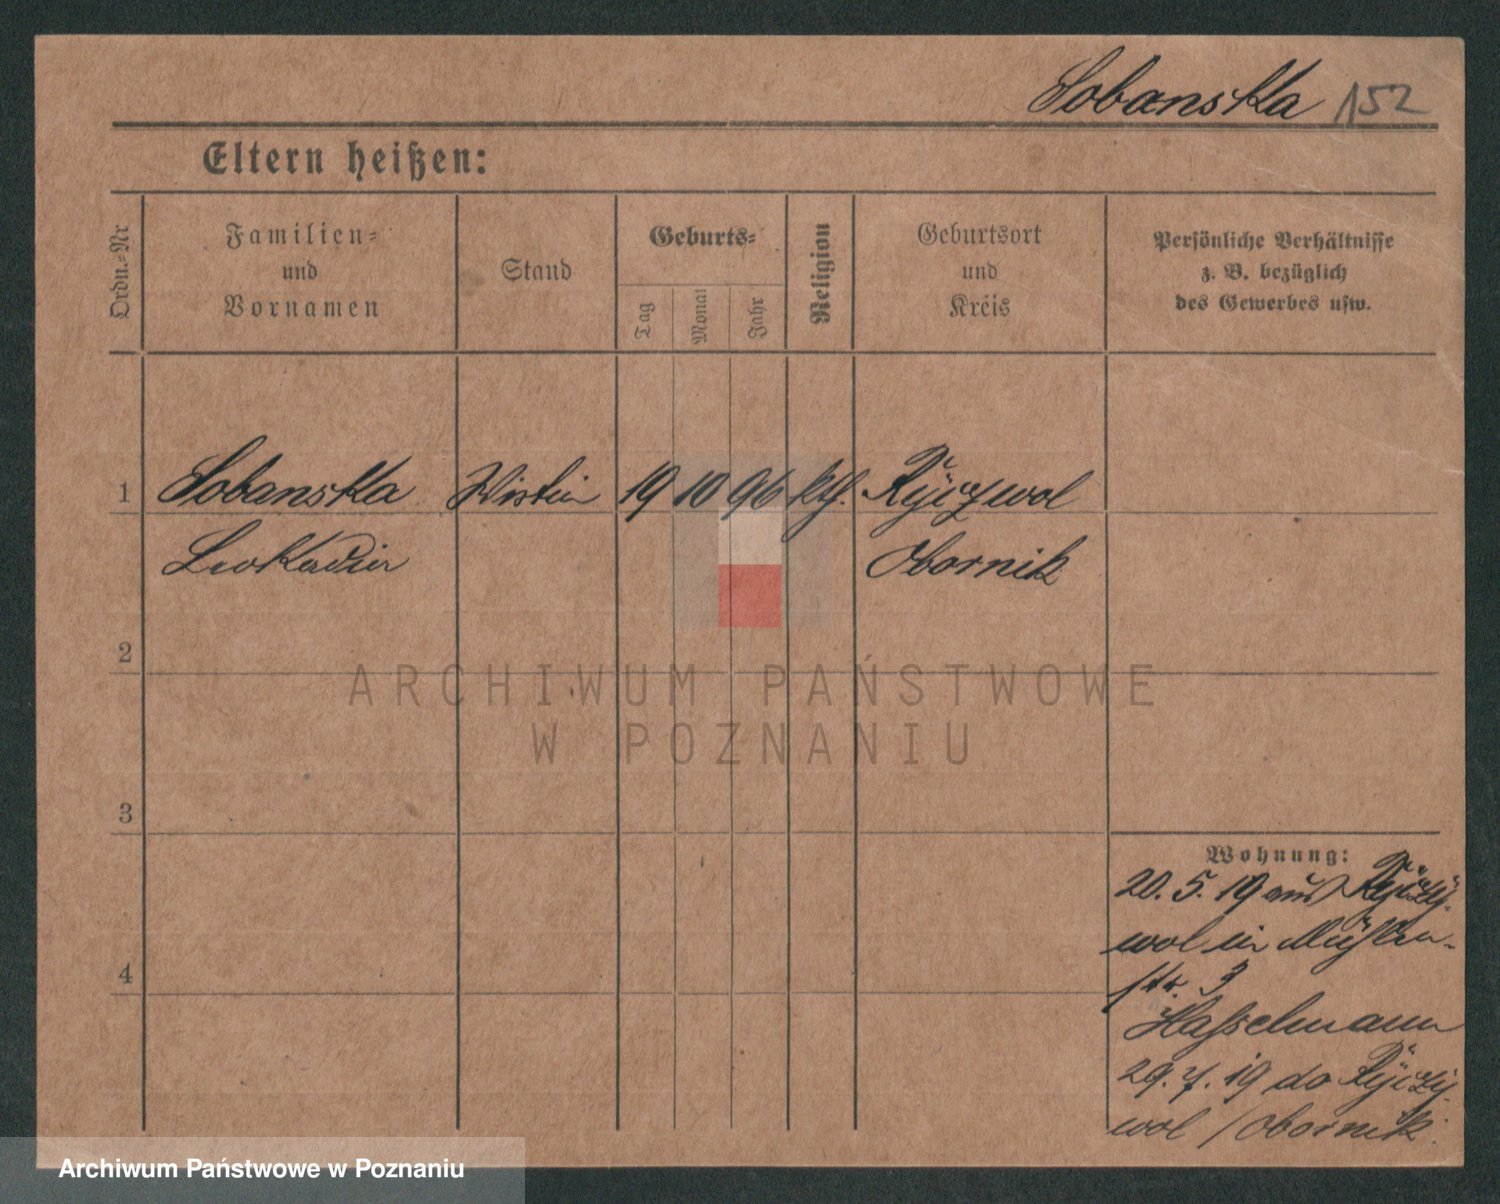 Sobanska 152
Eltern heißen:
Ordn.-Nr
Familien-
und
Vornamen
Stand
Geburts-
Tag
Monat
Jahr
Religion
Geburtsort
und
Kreis
Persönliche Verhältnisse
z. B. bezüglich
des Gewerbes usw.
1 Sobanska 19 10 96 kth. Ryczywol
Leokadia Obornik
2
3
4
Wohnung:
20. 5. 19 aus Ryczy-
wol in Mühlen-
str. 3
Hasselmann
29. 7. 19 do Ryczy
wol / Obornik.
ARCHIWUM PAŃSTWOWE
W POZNANIU
Archiwum Państwowe w Poznaniu